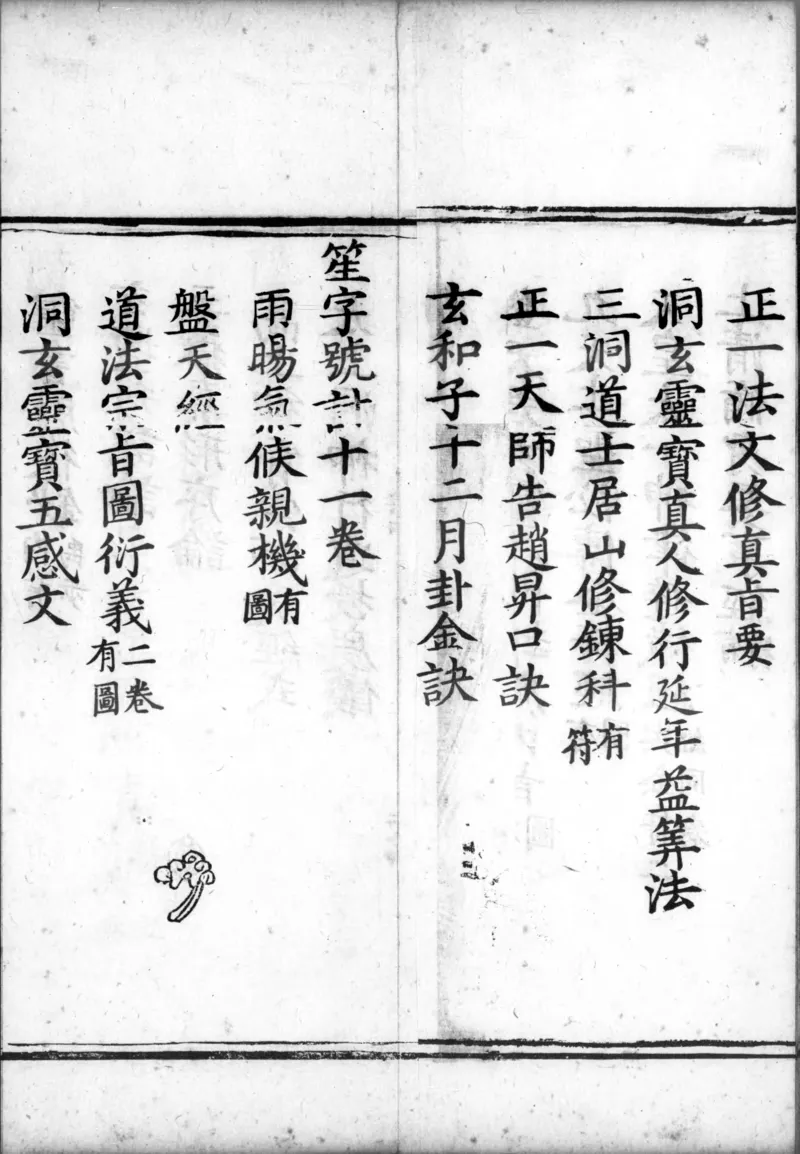 正一法文修真旨要
洞玄靈寶真人修行延年益筭法
三洞道士居山修鍊科有符
正一天師告趙昇口訣
玄和子十二月卦金訣
笙字號計十一卷
雨暘氣候親機有圖
盤天經
道法宗旨圖衍義二卷有圖
洞玄靈寶五感文